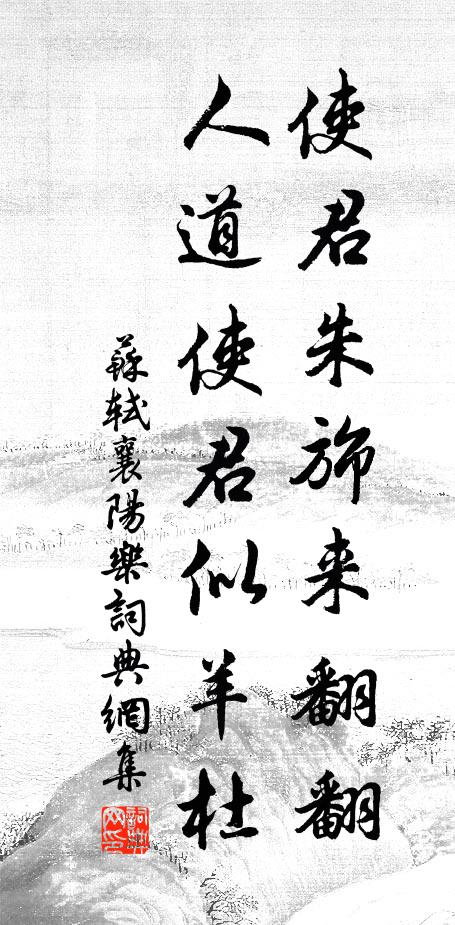 使君朱旆来翻翻
人道使君似羊杜
蘇軾襄陽樂詞典網集